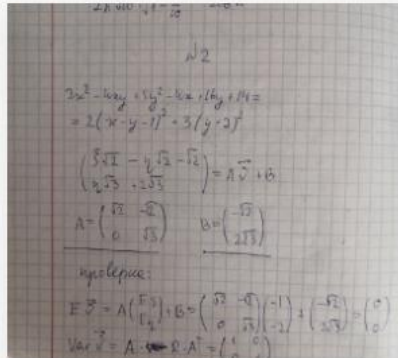 №2
2x² - 4xy + 5y² - 4x + 16y + 14 =
= 2(x - y - 1)² + 3(y + 2)²
(ξ√2 - η√2 - √2
η√3 + 2√3) = A J⃗ + B
A = (√2 -√2
0 √3) B = (-√2
2√3)
проверка:
E J⃗ = A(Eξ
Eη) + B = (√2 -√2
0 √3)(-1
-2) + (-√2
2√3) = (0
0)
Var J⃗ = A · R · Aᵀ =